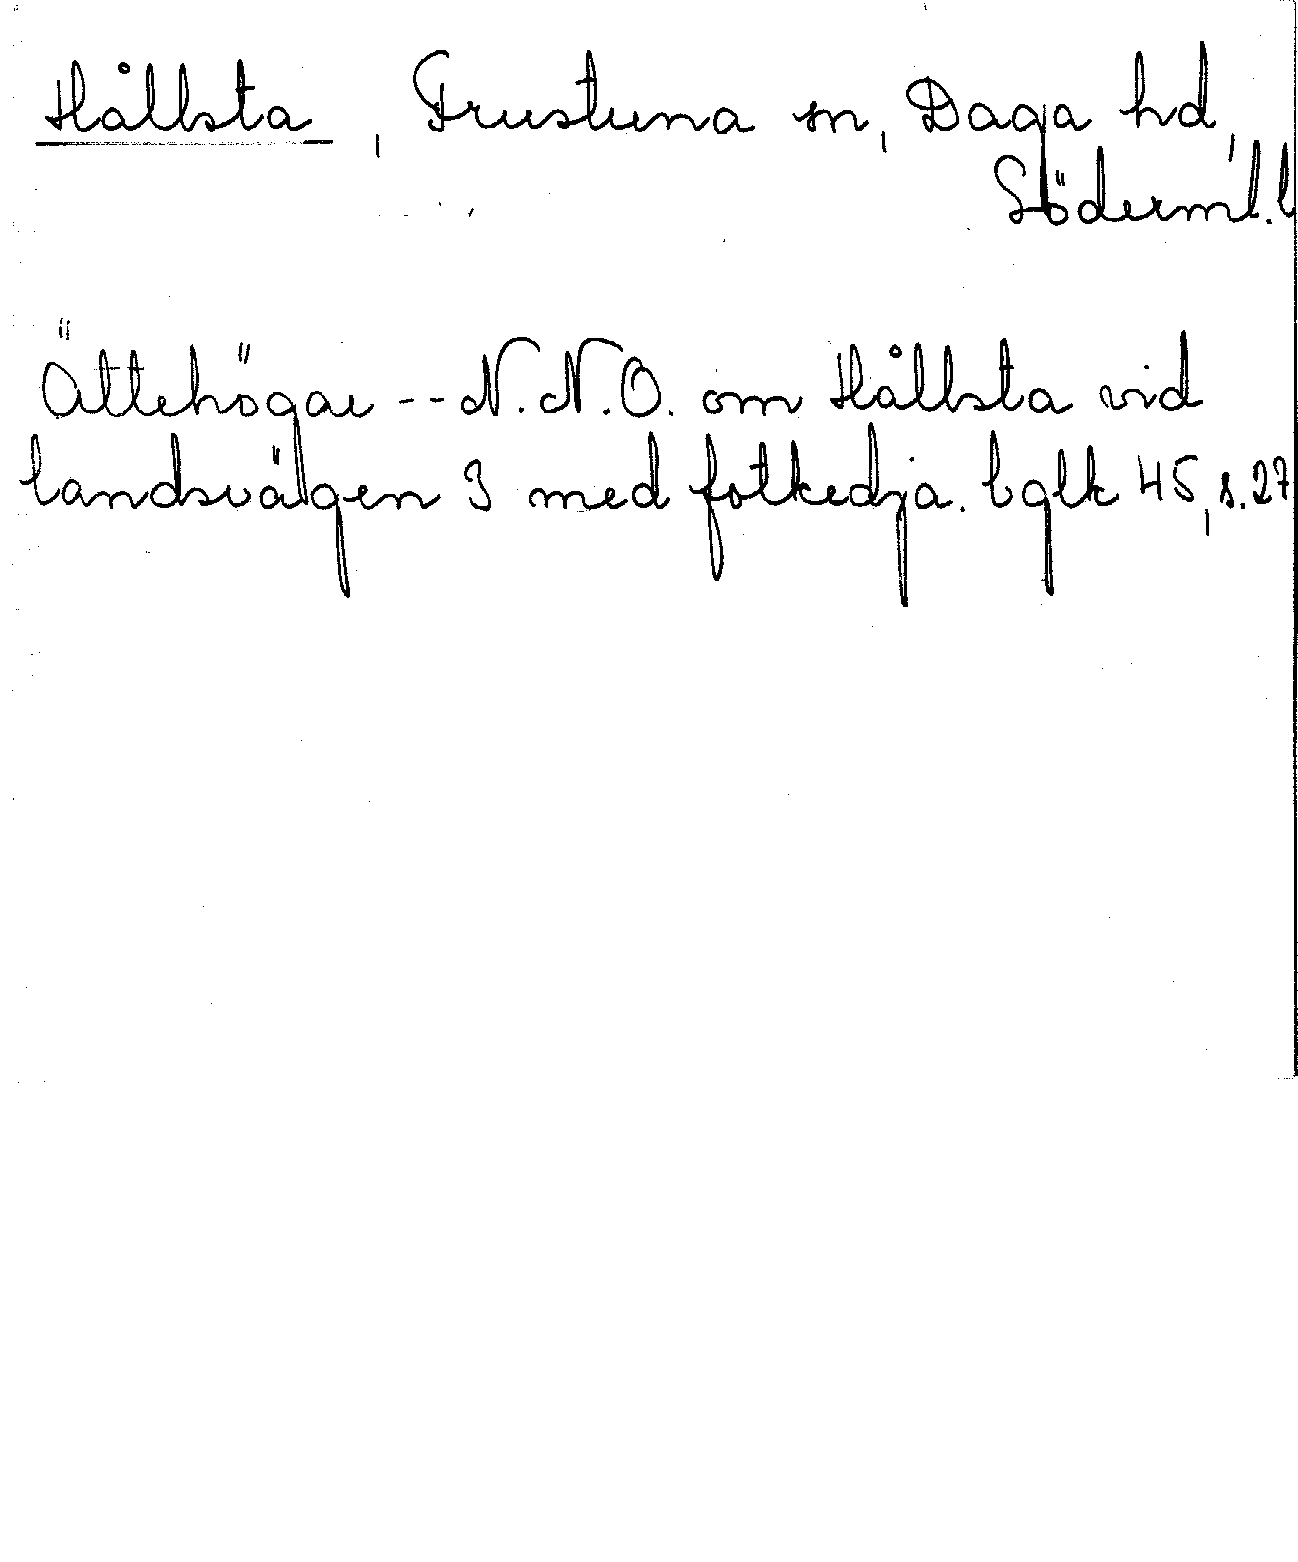 Hållsta, Frustuna sn, Daga hd,
Söderml. l
Ättehögar -- N.N.O. om Hållsta vid
landsvägen 3 med fotkedja. bglk 45, s. 27